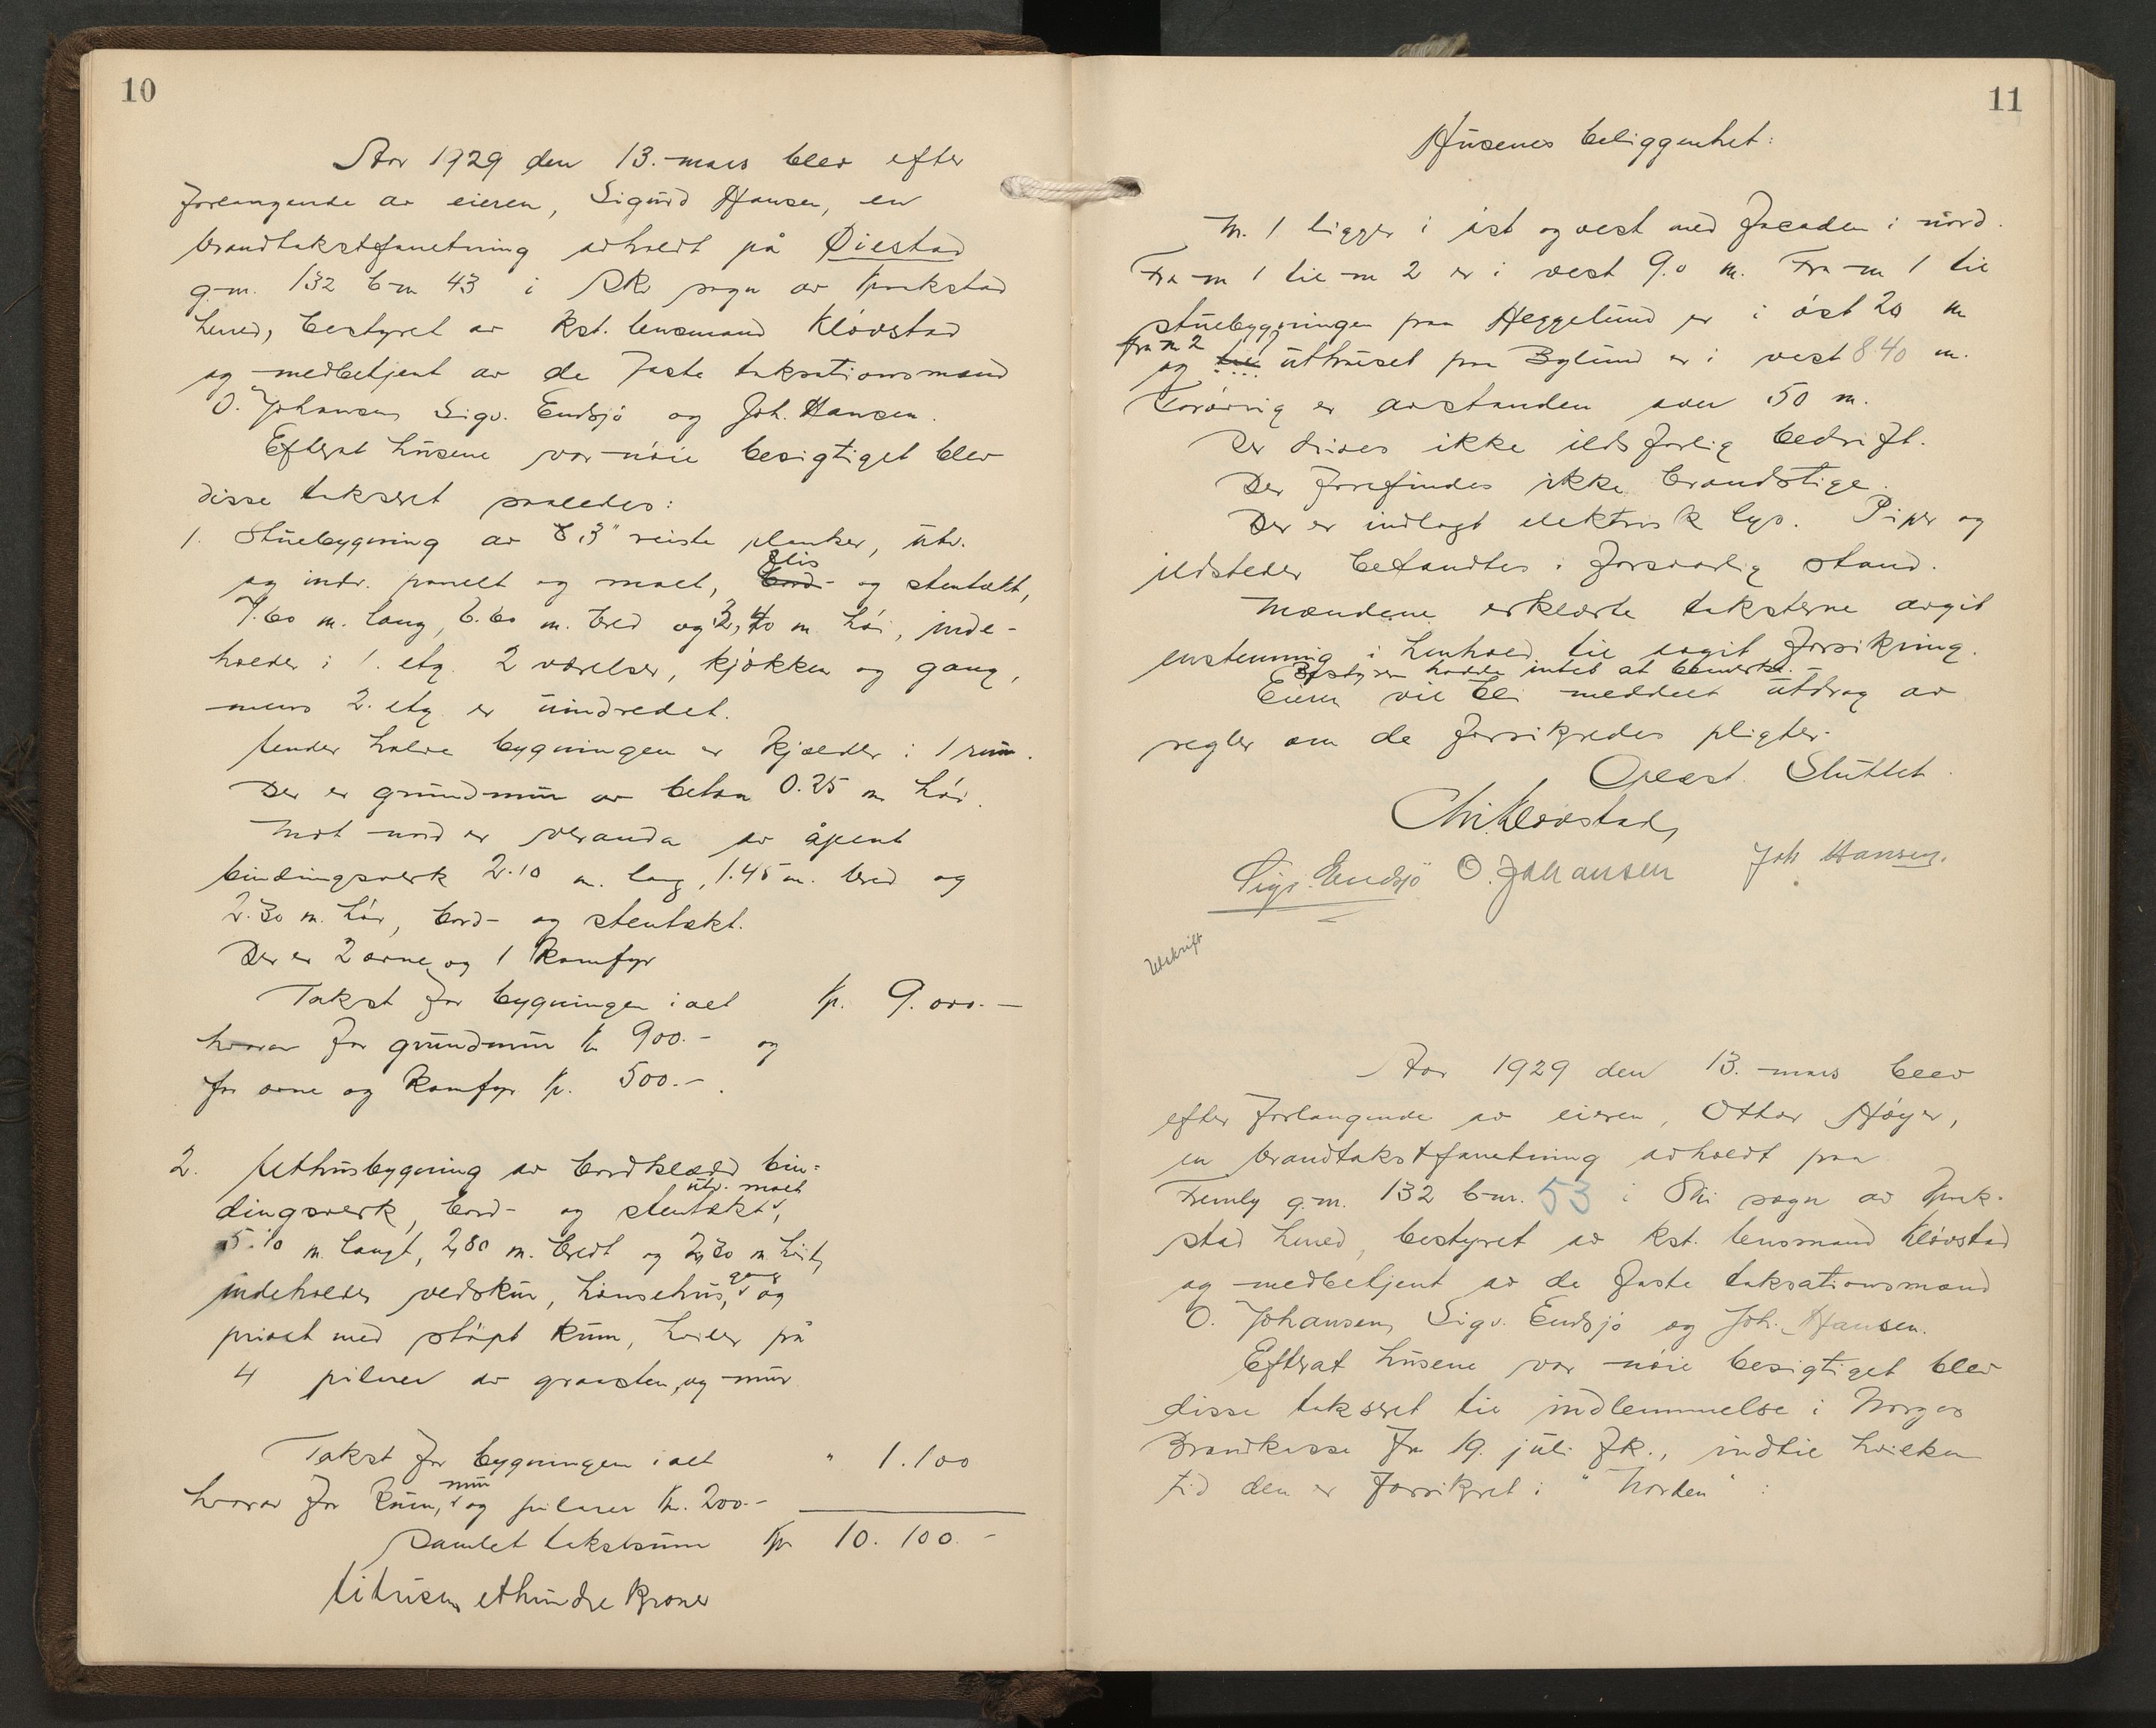 10
Aar 1929 den 13. mars blev efter
forlangende av eieren, Sigurd Hansen, en
brandtakstforretning avholdt på Øiestad
g-nr. 132 b-nr 43 i Ski sogn av Kraakstad
herred, bestyret av kst. lensmand Kløvstad
og medbetjent av de faste taksationsmænd
O. Johansen, Sigv. Endsjø og Joh. Hansen.
Efterat husene var nøie besigtiget blev
disse taksert saaledes:
1. Stuebygning av 3" reiste planker, utv.
og indv. panelt og malt, flis- og stentækt,
7.60 m. lang, 6.60 m. bred og 3,40 m høi, inde-
holder i 1. etg. 2 værelser, kjøkken og gang,
mens 2. etg. er uindredet.
Under halve bygningen er kjælder i 1 rum.
Der er grundmur av beton 0.25 m høi.
Mot nord er veranda av åpent
bindingsverk 2.10 m. lang, 1.45 m. bred og
2.30 m. høi, bord- og stentækt.
Der er 2 ovne og 1 komfyr
Takst for bygningen i alt kr. 9.000.-
hvorav for grundmur kr 900.- og
for ovne og komfyr kr. 500.-.
2. Uthusbygning av bordklædd bin-
dingsverk, bord- og stentækt, utv. malt
5.10 m. langt, 2,80 m. bredt og 2,30 m høit,
indeholder vedskur, hønsehus, gang og
privet med støpt kum, hviler på
4 pilarer av graasten og mur
Takst for bygningen i alt " 1.100
hvorav for kum, mur og pilarer kr. 200.-
Samlet takstsum kr 10.100.-
titusen ethundre kroner
11
Husenes beliggenhet:
Nr. 1 ligger i øst og vest med facaden i nord.
Fra nr 1 til nr 2 er i vest 9.0 m. Fra nr 1 til
stuebygningen paa Heggelund er i øst 20 m
og fra nr 2 til uthuset paa Bylund er i vest 840 m.
Forøvrig er avstanden over 50 m.
Der drives ikke ildsfarlig bedrift.
Der forefindes ikke brandstige.
Der er indlagt elektrisk lys. Piper og
ildsteder befandtes i forsvarlig stand.
Mændene erklærte taksterne avgit
enstemmig i henhold til avgit forsikring.
Bestyreren hadde intet at bemerke.
Eieren vil bli meddelt utdrag av
regler om de forsikredes pligter.
Oplæst. Sluttet.
Chr. Kløvstad
Sigv. Endsjö O. Johansen Joh Hansen.
Utskrift
Aar 1929 den 13. mars blev
efter forlangende av eieren, Othar Høyer,
en brandtakstforretning avholdt paa
Fremly g-nr. 132 b-nr. 53 i Ski sogn av Kraak-
stad herred, bestyret av kst. lensmand Kløvstad
og medbetjent av de faste taksationsmænd
O. Johansen, Sigv. Endsjø og Joh. Hansen.
Efterat husene var nøie besigtiget blev
disse taksert til indlemmelse i Norges
Brandkasse fra 19. juli fk., indtil hvilken
tid den er forsikret i "Norden":